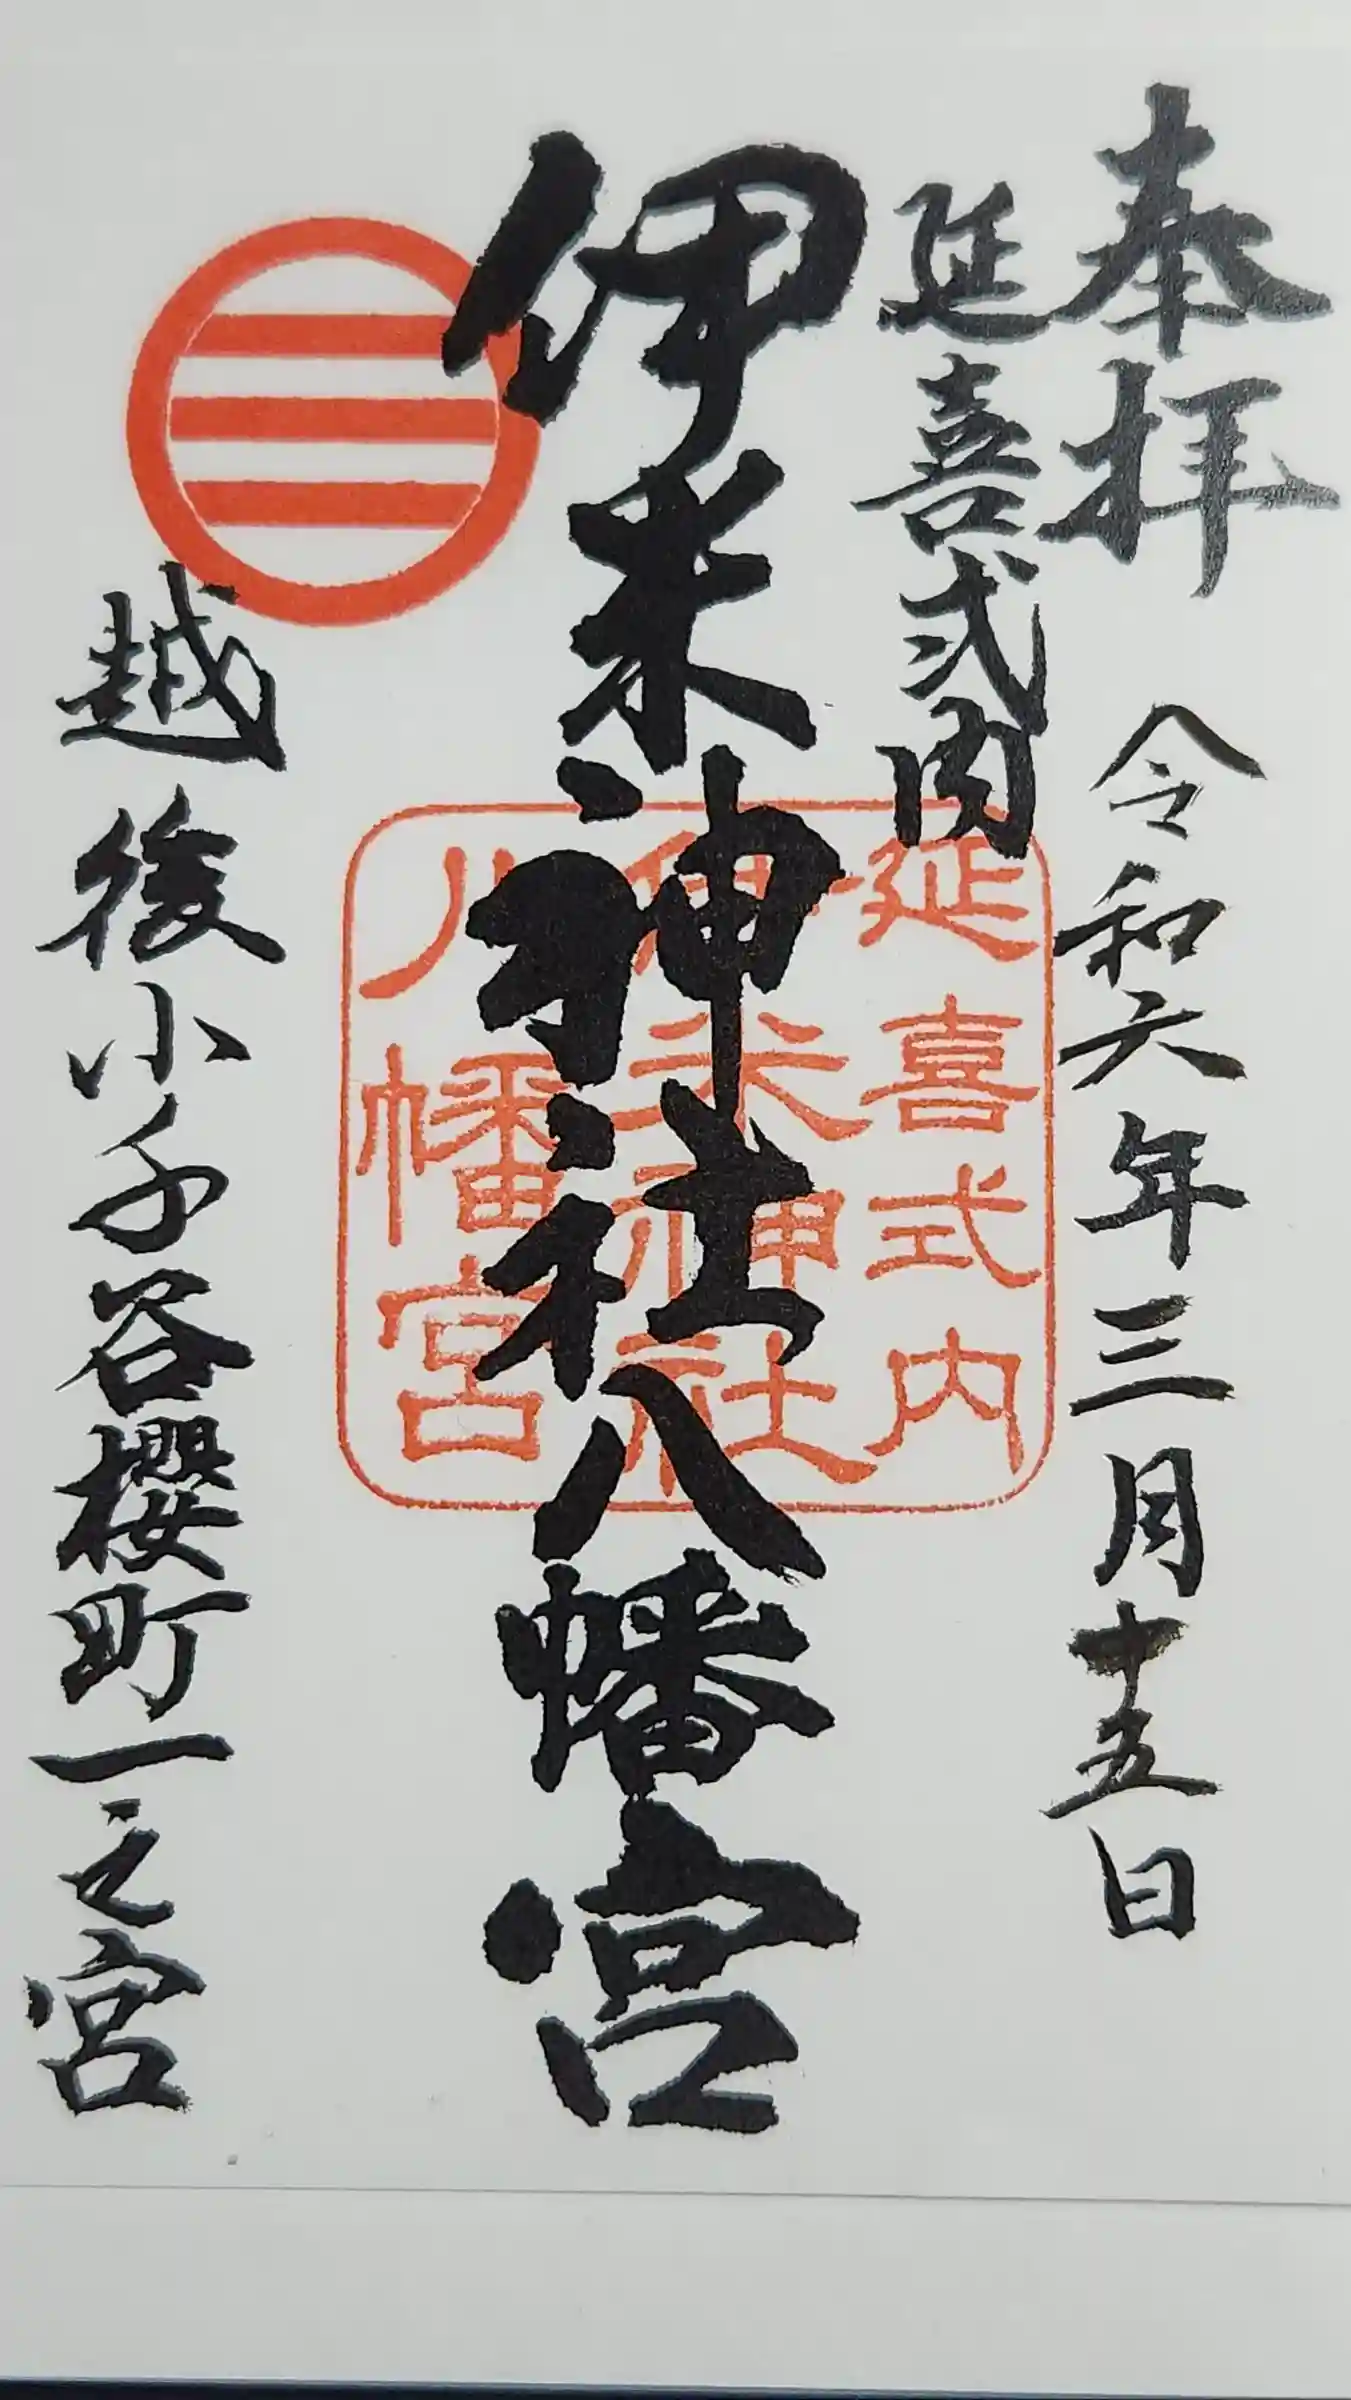 奉拝
令和六年三月十五日
延喜式内
伊米神社八幡宮
越後小千谷櫻町一之宮
延喜式内
伊米神社
八幡宮